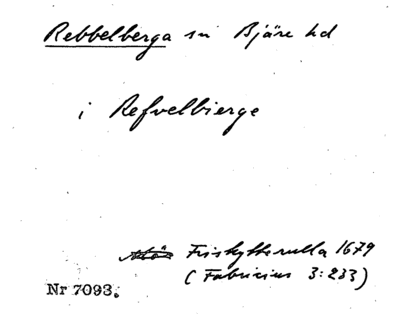 Rebbelberga sn Bjäre hd
i Refvelbierge
Friskytterulla 1679
(Fabricius 3:233)
Nr 7093.